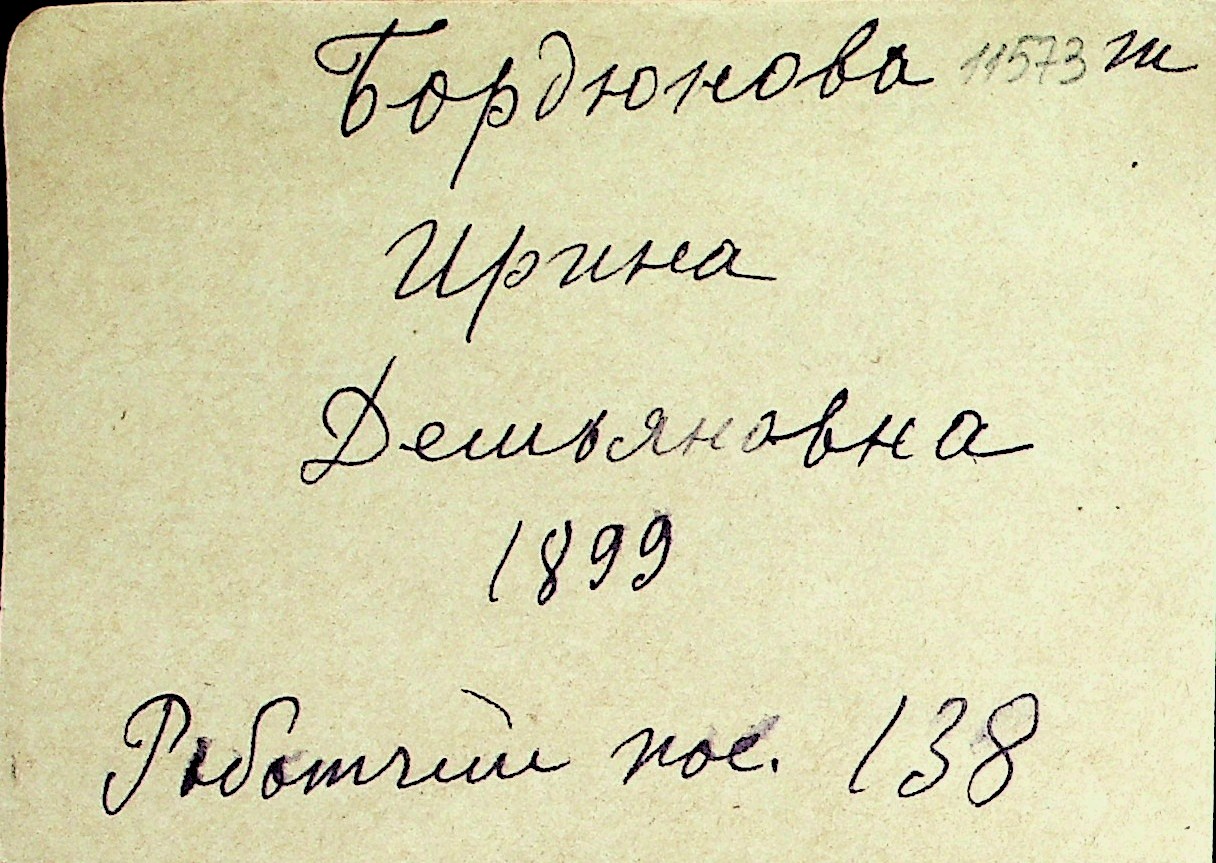 Бордюкова 11573 т
Ирина
Демьяновна
1899
Работчий пос. 138